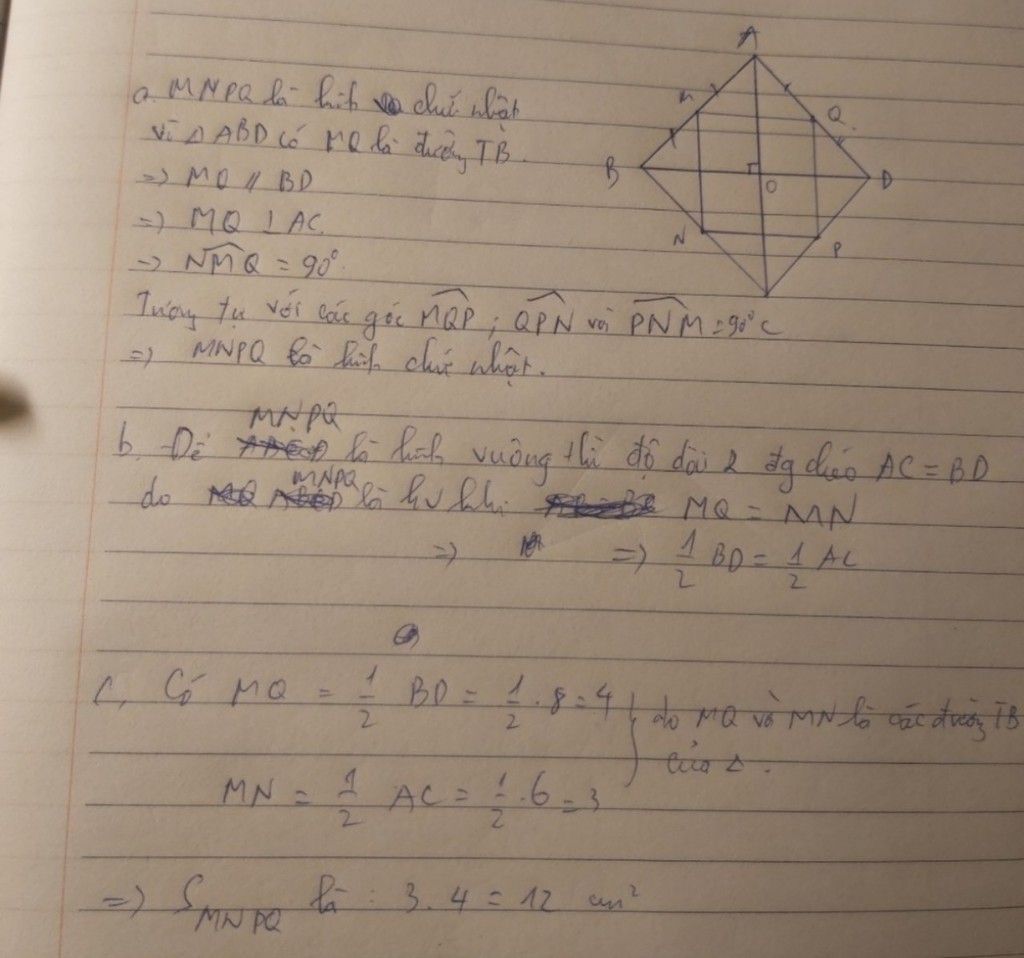 A
M
Q
B
D
O
N
P
C
a. MNPQ là hình chữ nhật
vì Δ ABD có MQ là đường TB.
=> MQ // BD
=> MQ ⊥ AC
=> NMQ = 90°.
Tương tự với các góc MQP ; QPN và PNM = 90°
=> MNPQ là hình chữ nhật.
b. Để MNPQ là hình vuông thì độ dài 2 đg chéo AC = BD
do MNPQ là hv khi MQ = MN
=> => 1/2 BD = 1/2 AC
c, Có MQ = 1/2 BD = 1/2 . 8 = 4 } do MQ và MN là các đường TB
của Δ.
MN = 1/2 AC = 1/2 . 6 = 3
=> S MNPQ là : 3 . 4 = 12 cm²